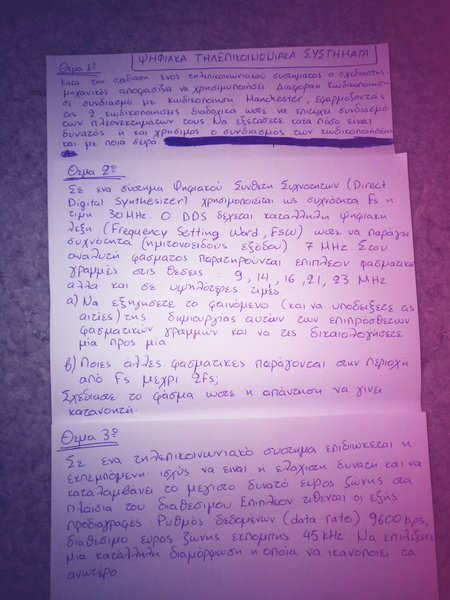 ΨΗΦΙΑΚΑ ΤΗΛΕΠΙΚΟΙΝΩΝΙΑΚΑ ΣΥΣΤΗΜΑΤΑ
Θεμα 1º
Κατα την σχεδιαση ενος τηλεπικοινωνιακου συστηματος ο σχεδιαστης
μηχανικος αποφασιζει να χρησιμοποιησει Διαφορικη Κωδικοποιηση
σε συνδυασμο με κωδικοποιηση Manchester, εφαρμοζοντας
τις 2 κωδικοποιησεις διαδοχικα ωστε να επιτυχει συνδυασμο
των πλεονεκτηματων τους. Να εξετασετε κατα ποσο ειναι
δυνατος ή και χρησιμος ο συνδυασμος των κωδικοποιησεων
και με ποια σειρα
Θεμα 2º
Σε ενα συστημα Ψηφιακου Συνθετη Συχνοτητων (Direct
Digital Synthesizer) χρησιμοποιειται ως συχνοτητα Fs η
τιμη 30 MHz. Ο DDS δεχεται καταλληλη ψηφιακη
λεξη (Frequency Setting Word, FSW) ωστε να παραγει
συχνοτητα (ημιτονοειδους εξοδου) 7 MHz. Στον
αναλυτη φασματος παρατηρουνται επιπλεον φασματικες
γραμμες στις θεσεις: 9, 14, 16, 21, 23 MHz
αλλα και σε υψηλοτερες τιμες.
α) Να εξηγησετε το φαινομενο (και να υποδειξετε τις
αιτιες) της δημιουργιας αυτων των επιπροσθετων
φασματικων γραμμων και να τις δικαιολογησετε
μια προς μια.
β) Ποιες αλλες φασματικες παραγονται στην περιοχη
απο Fs μεχρι 2Fs;
Σχεδιασε το φασμα ωστε η απαντηση να γινει
κατανοητη.
Θεμα 3º
Σε ενα τηλεπικοινωνιακο συστημα επιδιωκεται η
εκπεμπομενη ισχυς να ειναι η ελαχιστη δυνατη και να
καταλαμβανει το μεγιστο δυνατο ευρος ζωνης στα
πλαισια του διαθεσιμου. Επιπλεον τιθενται οι εξης
προδιαγραφες: Ρυθμος δεδομενων (data rate) 9600 bps,
διαθεσιμο ευρος ζωνης εκπομπης 45 kHz. Να επιλεξετε
μια καταλληλη διαμορφωση η οποια να ικανοποιει τα
ανωτερω.